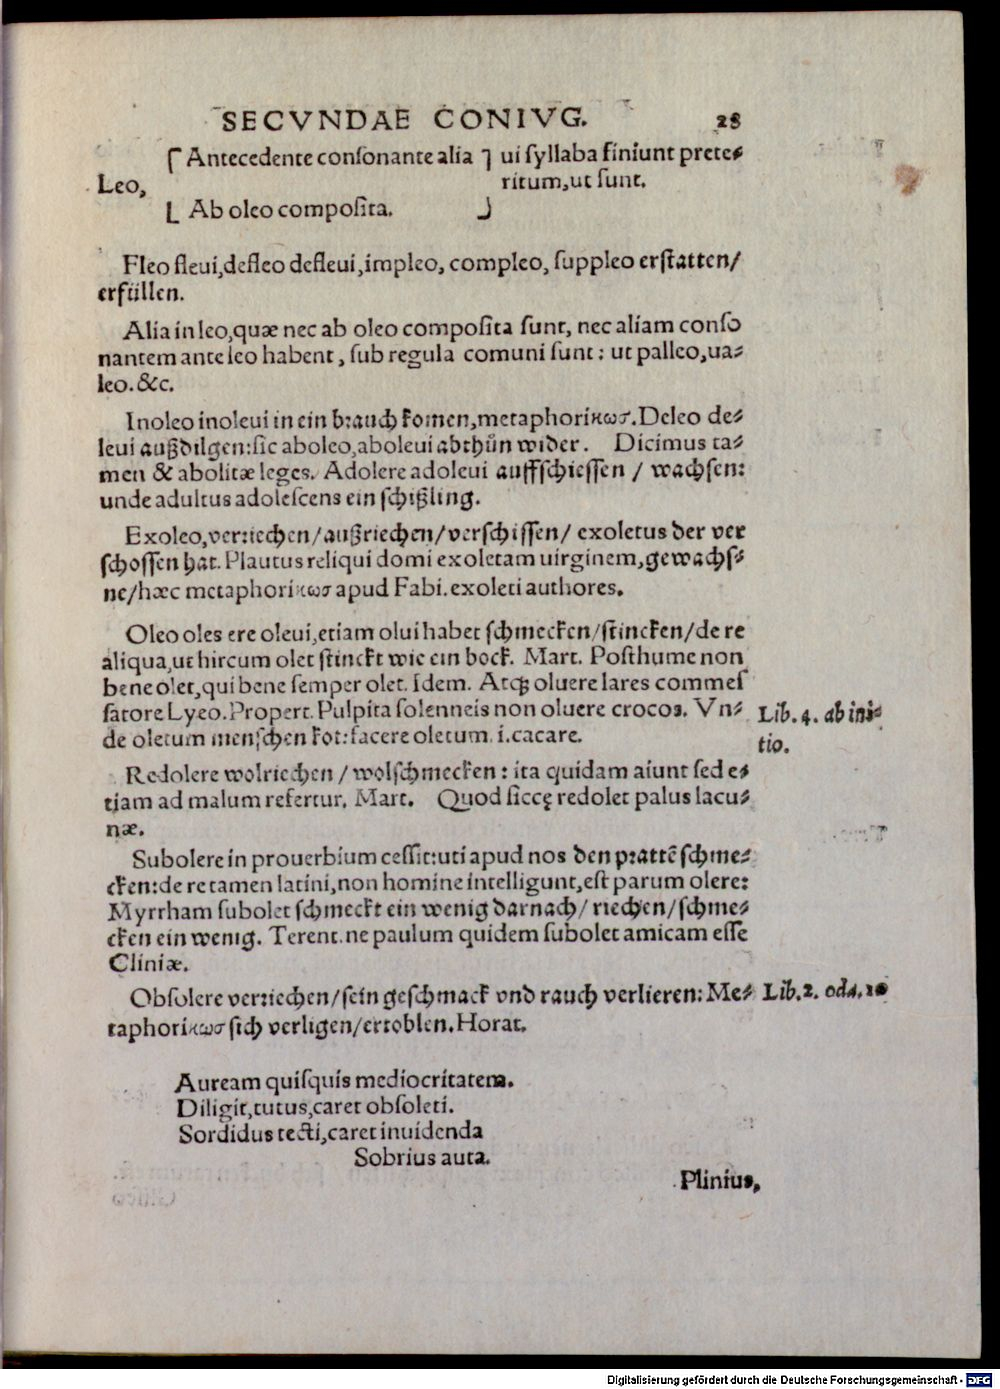 SECVNDAE CONIVG. 28
⌈ Antecedente conſonante alia ⌉ ui ſyllaba finiunt prete⸗
Leo, ritum, ut ſunt.
⌊ Ab oleo compoſita. ⌋
Fleo fleui, defleo defleui, impleo, compleo, suppleo erſtatten/
erfüllen.
Alia in leo, quæ nec ab oleo compoſita ſunt, nec aliam conſo
nantem ante leo habent, ſub regula comuni ſunt: ut palleo, ua⸗
leo. &c.
Inoleo inoleui in ein brauch komen, metaphoriκωσ. Deleo de⸗
leui außdilgen: ſic aboleo, aboleui abthůn wider. Dicimus ta⸗
men & abolitæ leges. Adolere adoleui auffſchieſſen / wachſen:
unde adultus adoleſcens ein ſchißling.
Exoleo, verriechen/außriechen/verſchiſſen/ exoletus der ver
ſchoſſen hat. Plautus reliqui domi exoletam uirginem, gewachſ⸗
ne/hæc metaphoriκωσ apud Fabi. exoleti authores.
Oleo oles ere oleui, etiam olui habet ſchmecken/ſtincken/de re
aliqua, ut hircum olet ſtinckt wie ein bock. Mart. Poſthume non
bene olet, qui bene ſemper olet. Idem. Atqꝫ oluere lares commeſ
ſatore Lyeo. Propert. Pulpita ſolenneis non oluere crocos. Vn⸗ Lib. 4. ab ini⸗
de oletum menſchen kot: facere oletum .i. cacare. tio.
Redolere wolriechen / wolſchmecken : ita quidam aiunt ſed e⸗
tiam ad malum refertur. Mart. Quod ſiccę redolet palus lacu⸗
næ.
Subolere in prouerbium ceſſit: uti apud nos den prattē ſchme⸗
cken: de re tamen latini, non homine intelligunt, eſt parum olere:
Myrrham ſubolet ſchmeckt ein wenig darnach/ riechen/ſchme⸗
cken ein wenig. Terent. ne paulum quidem ſubolet amicam eſſe
Cliniæ.
Obſolere verriechen/ſein geſchmack vnd rauch verlieren: Me⸗ Lib. 2. oda. 10
taphoriκωσ ſich verligen/ertoblen. Horat.
Auream quiſquis mediocritatem.
Diligit, tutus, caret obſoleti.
Sordidus tecti, caret inuidenda
Sobrius auta.
Plinius,
Digitalisierung gefördert durch die Deutsche Forschungsgemeinschaft - DFG